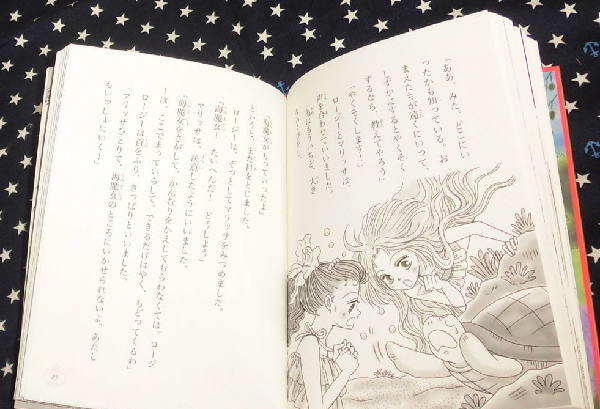 「ああ、みた。どこにい
ったかも知っている。お
まえたちが遠くにいって、
しずかにするとやくそく
するなら、教えてやろう」
「やくそくします!」
ロージーとマリッサは、
声を合わせていいました。
「海魔女がもっていったよ」
といって、また目をとじました。
ロージーは、ぞっとしてマリッサをみつめました。
「海魔女! たいへんだ! どうしよう」
マリッサは、決意したようにいいました。
「海魔女をさがして、かんむりをかえしてもらわなくては。ロージ
ーは、ここでまっていらして。できるだけはやく、もどってくるわ」
ロージーは首をふり、きっぱりといいました。
「マリッサひとりで、海魔女のところにいかせられないよ。あたし
もいっしょにいく!」